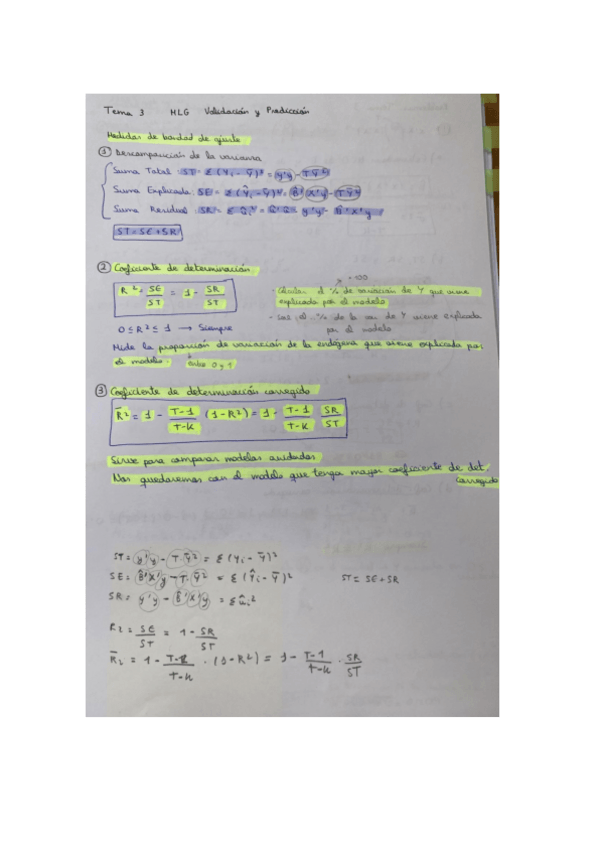 Tema 3 MLG Validación y Predicción
Medidas de bondad de ajuste
① Descomposición de la varianza
Suma Total: ST = Σ (Yi - Ȳ)² = y'y - TȲ²
Suma Explicada: SE = Σ (Ŷi - Ȳ)² = β̂'X'y - TȲ²
Suma Residual: SR = Σ ûi² = û'û = y'y - β̂'X'y
ST = SE + SR
② Coeficiente de determinación
R² = SE/ST = 1 - SR/ST
×100
- Calcular el % de variación de Y que viene
explicada por el modelo
- ... % de la var de Y viene explicada
por el modelo
0 ≤ R² ≤ 1 → Siempre
Mide la proporción de variación de la endógena que viene explicada por
el modelo. entre 0 y 1
③ Coeficiente de determinación corregido
R̄² = 1 - T-1/T-K (1-R²) = 1 - T-1/T-K SR/ST
Sirve para comparar modelos anidados
Nos quedaremos con el modelo que tenga mayor coeficiente de det
corregido
ST = y'y - T·Ȳ² = Σ (Yi - Ȳ)²
SE = β̂'X'y - T·Ȳ² = Σ (Ŷi - Ȳ)² ST = SE + SR
SR = y'y - β̂'X'y = Σ ûi²
R2 = SE/ST = 1 - SR/ST
R̄2 = 1 - T-1/T-K · (1-R²) = 1 - T-1/T-K · SR/ST